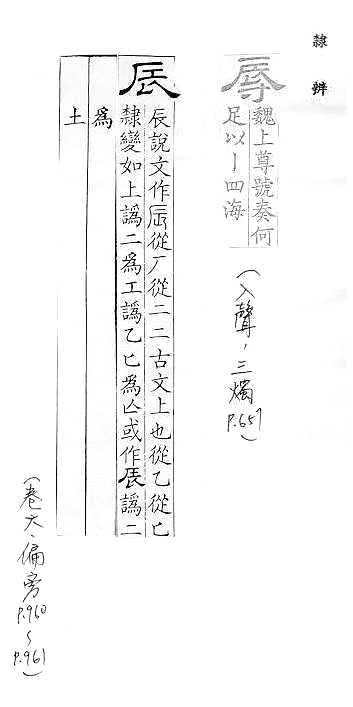 隸辨
辱 魏上尊號奏何
足以丨四海
(入聲,三燭
P.657)
辰 辰說文作𠨷從厂從二二古文上也從乙從匕
隸變如上譌二為工譌乙匕為亾或作辰譌二
為
土
(卷六、偏旁
P.960
~
P.961)